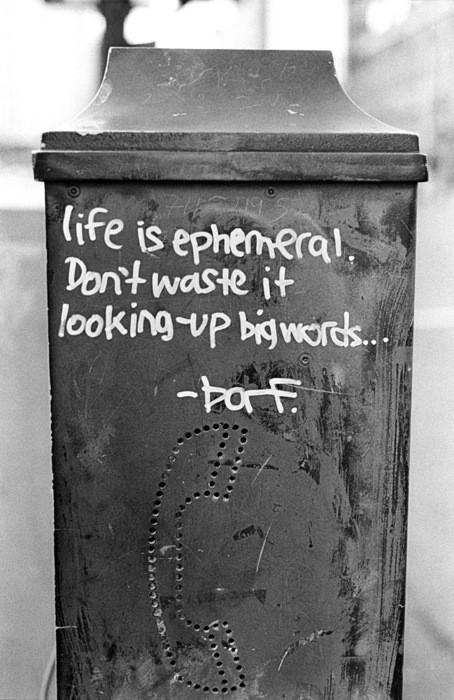 life is ephemeral.
Don't waste it
looking-up big words...
-borf.